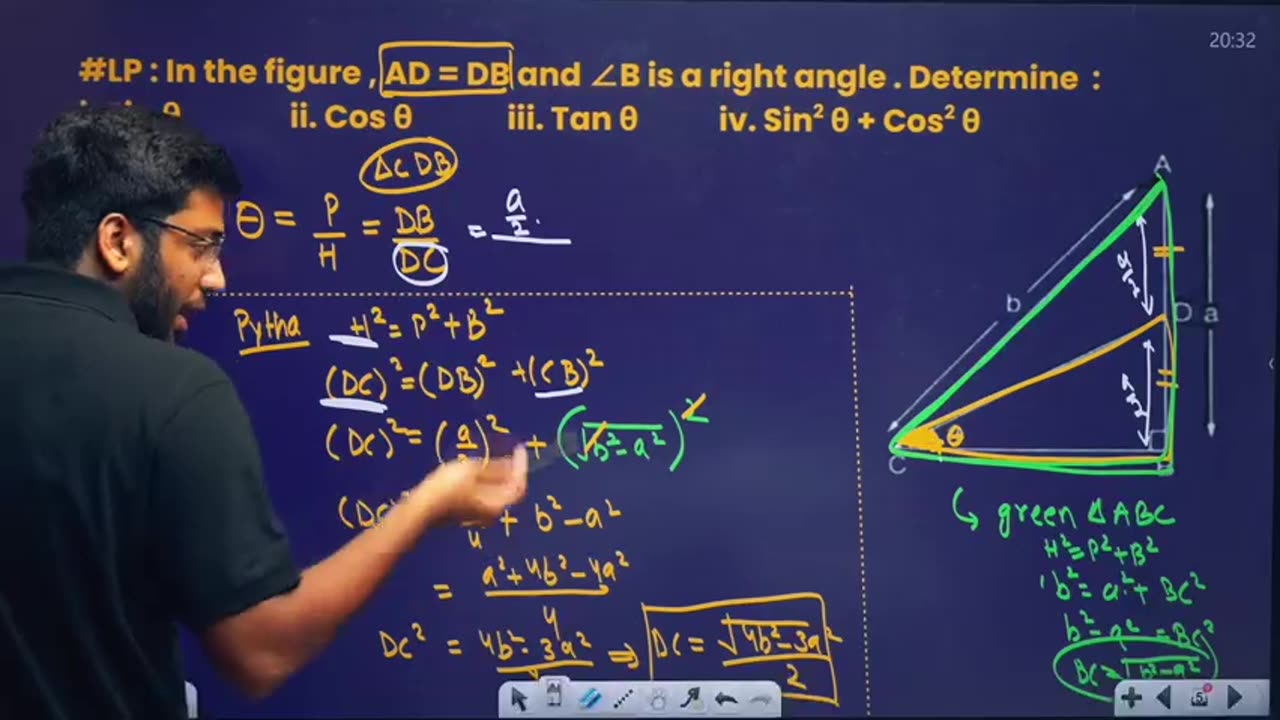 20:32
#LP : In the figure , AD = DB and ∠B is a right angle . Determine :
θ ii. Cos θ iii. Tan θ iv. Sin² θ + Cos² θ
ΔCDB
θ = P/H = DB/DC = a/2
Pytha H² = P² + B²
(DC)² = (DB)² + (CB)²
(DC)² = (a/)² + (√b²-a²)²
(DC + b² - a²
4
= a² + 4b² - 4a² / 4
DC² = 4b² - 3a² ⇒ DC = √4b²-3a² / 2
A
a/2
b
D
a
a/2
θ
C
B
↳ green ΔABC
H² = P² + B²
b² = a² + BC²
b² - a² = BC²
BC = √b²-a²
5